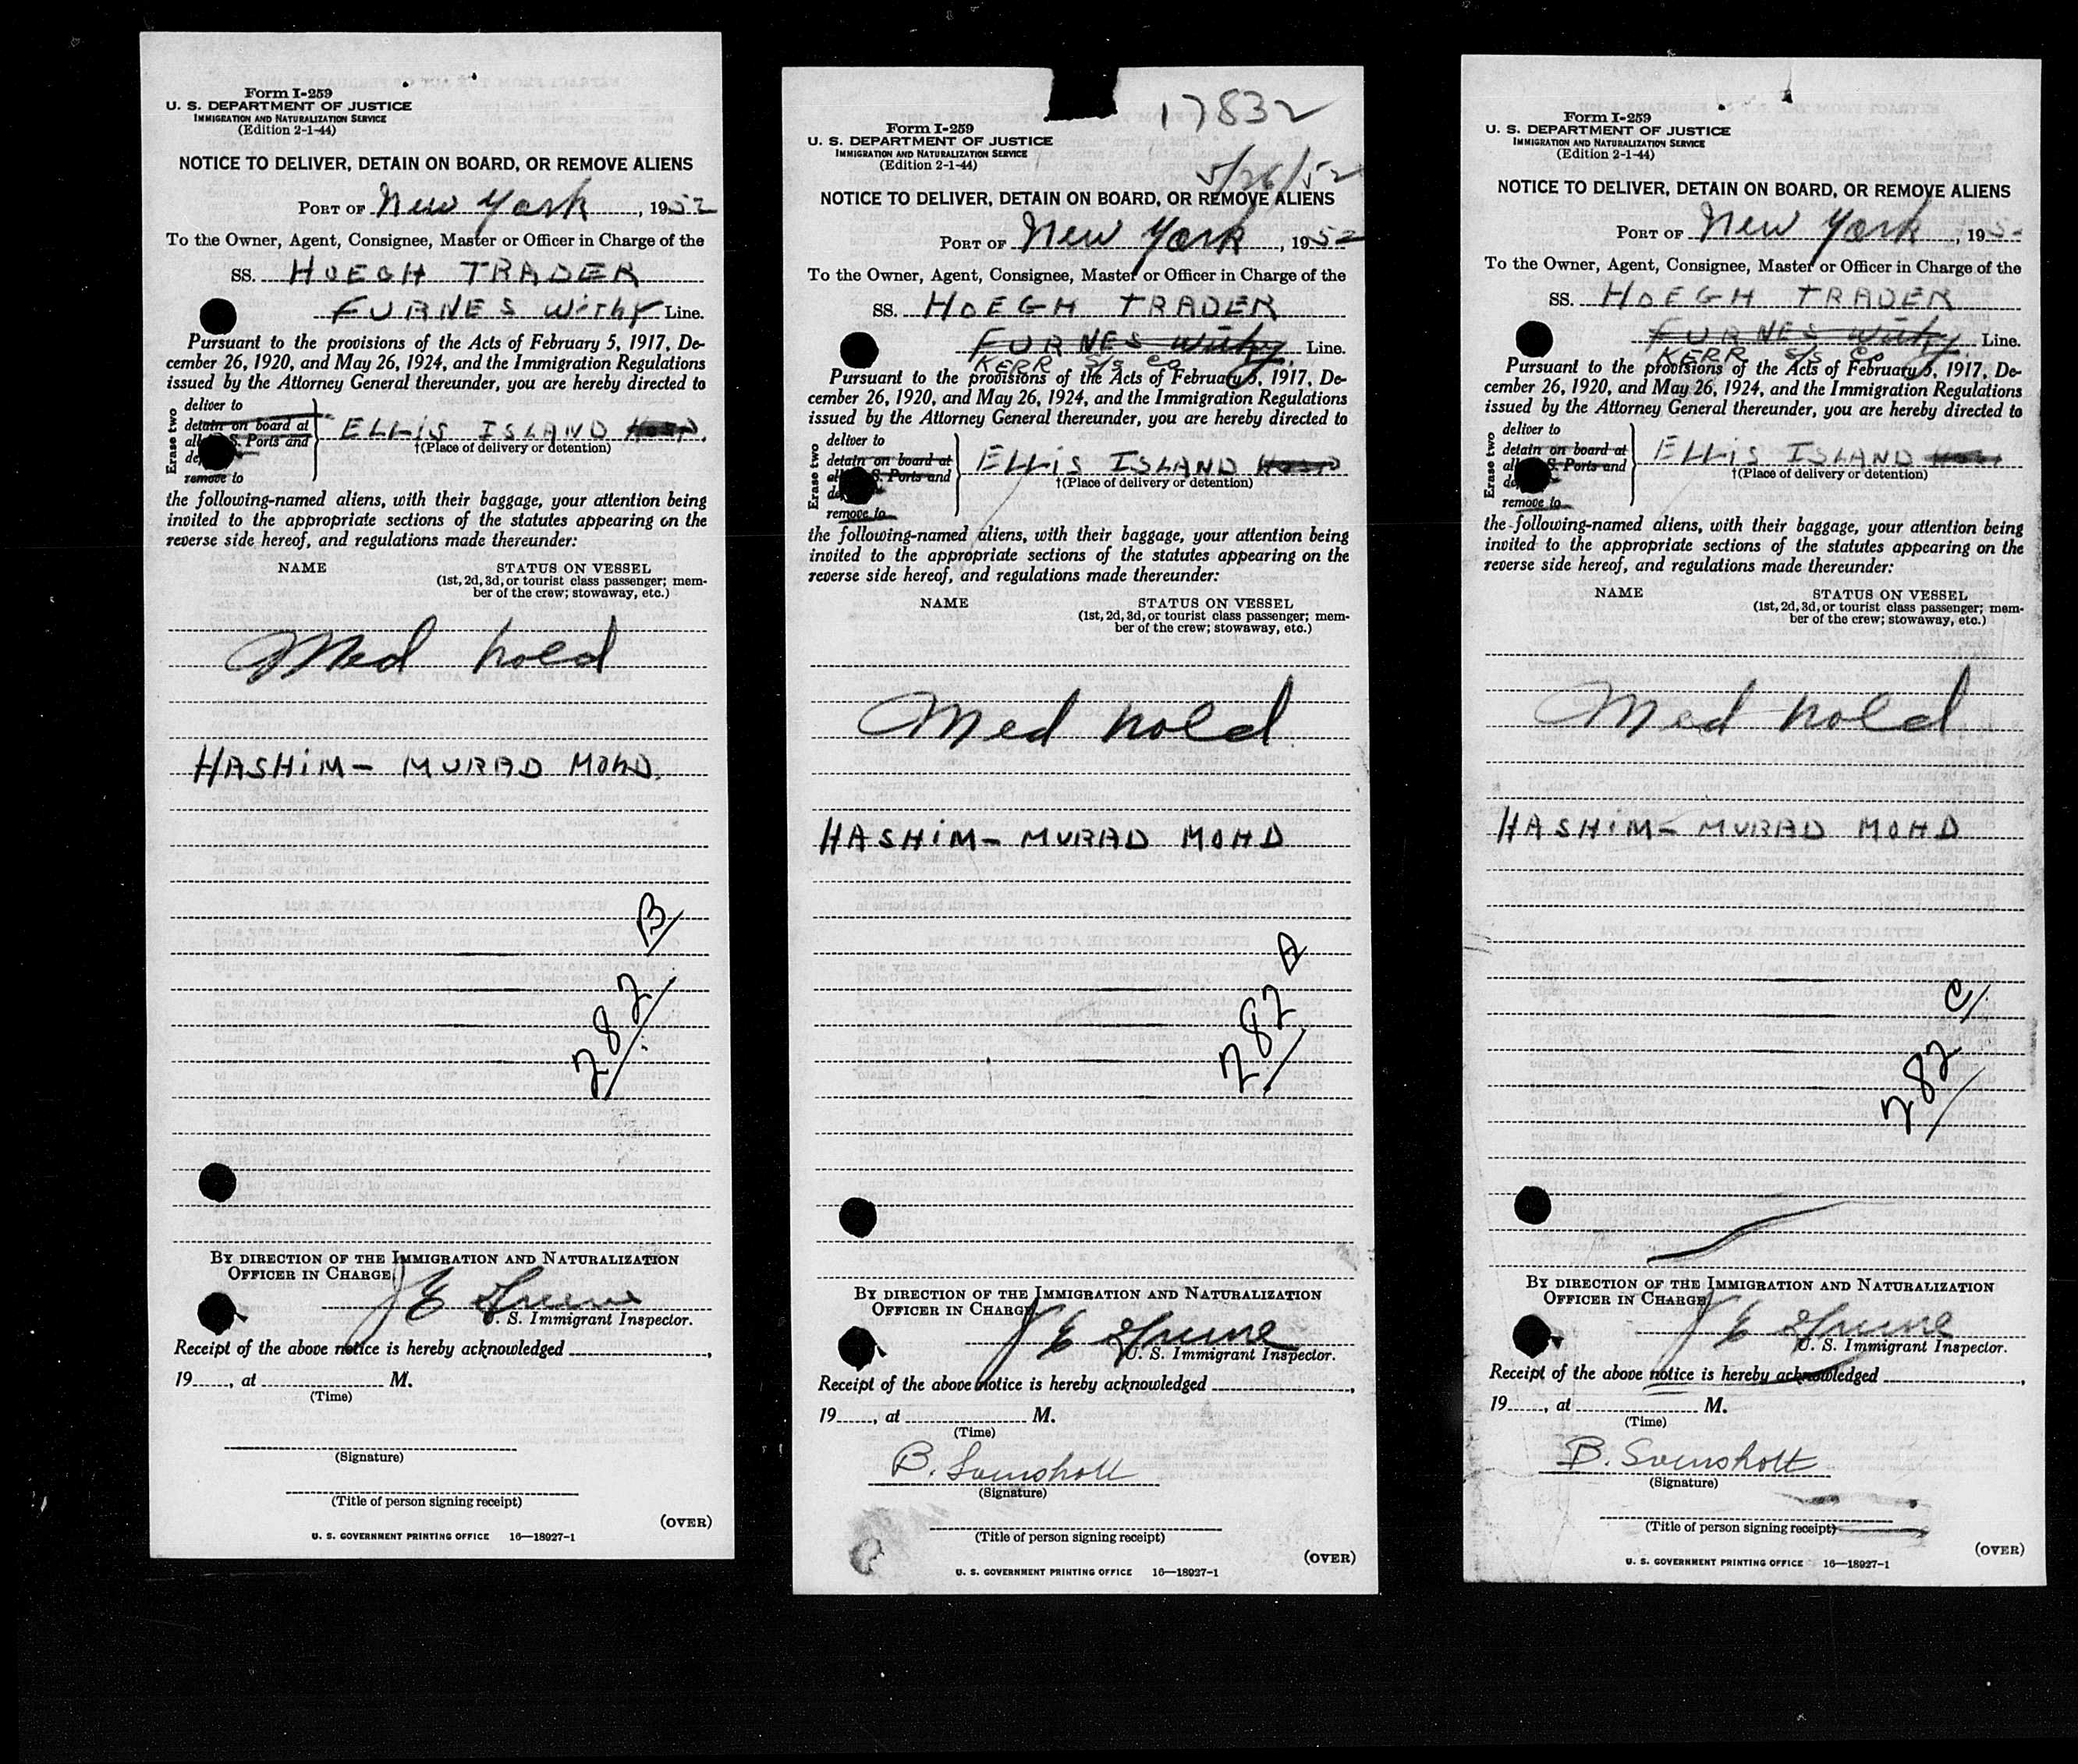 Form I-259
U. S. DEPARTMENT OF JUSTICE
IMMIGRATION AND NATURALIZATION SERVICE
(Edition 2-1-44)
NOTICE TO DELIVER, DETAIN ON BOARD, OR REMOVE ALIENS
PORT OF New York, 1952
To the Owner, Agent, Consignee, Master or Officer in Charge of the
SS. HOEGH TRADER
FURNES Withy Line.
Pursuant to the provisions of the Acts of February 5, 1917, De-
cember 26, 1920, and May 26, 1924, and the Immigration Regulations
issued by the Attorney General thereunder, you are hereby directed to
Erase two
deliver to
detain on board at
all S. Ports and
remove to
ELLIS ISLAND
†(Place of delivery or detention)
the following-named aliens, with their baggage, your attention being
invited to the appropriate sections of the statutes appearing on the
reverse side hereof, and regulations made thereunder:
NAME STATUS ON VESSEL
(1st, 2d, 3d, or tourist class passenger; mem-
ber of the crew; stowaway, etc.)
Med hold
HASHIM- MURAD MOHD.
282 B
BY DIRECTION OF THE IMMIGRATION AND NATURALIZATION
OFFICER IN CHARGE
J E Greene
U. S. Immigrant Inspector.
Receipt of the above notice is hereby acknowledged
19, at M.
(Time)
(Signature)
(Title of person signing receipt)
(OVER)
U. S. GOVERNMENT PRINTING OFFICE 16—18927-1
17832
Form I-259
U. S. DEPARTMENT OF JUSTICE
IMMIGRATION AND NATURALIZATION SERVICE
(Edition 2-1-44)
5/26/52
NOTICE TO DELIVER, DETAIN ON BOARD, OR REMOVE ALIENS
PORT OF New York, 1952
To the Owner, Agent, Consignee, Master or Officer in Charge of the
SS. HOEGH TRADER
FURNES Withy Line.
KERR S/S Co
Pursuant to the provisions of the Acts of February 5, 1917, De-
cember 26, 1920, and May 26, 1924, and the Immigration Regulations
issued by the Attorney General thereunder, you are hereby directed to
Erase two
deliver to
detain on board at
all S. Ports and
remove to
ELLIS ISLAND Hosp
†(Place of delivery or detention)
the following-named aliens, with their baggage, your attention being
invited to the appropriate sections of the statutes appearing on the
reverse side hereof, and regulations made thereunder:
NAME STATUS ON VESSEL
(1st, 2d, 3d, or tourist class passenger; mem-
ber of the crew; stowaway, etc.)
Med hold
HASHIM- MURAD MOHD
282 A
BY DIRECTION OF THE IMMIGRATION AND NATURALIZATION
OFFICER IN CHARGE
J E Greene
U. S. Immigrant Inspector.
Receipt of the above notice is hereby acknowledged
19, at M.
(Time)
B. Svensholt
(Signature)
(Title of person signing receipt)
(OVER)
U. S. GOVERNMENT PRINTING OFFICE 16—18927-1
Form I-259
U. S. DEPARTMENT OF JUSTICE
IMMIGRATION AND NATURALIZATION SERVICE
(Edition 2-1-44)
NOTICE TO DELIVER, DETAIN ON BOARD, OR REMOVE ALIENS
PORT OF New York, 195
To the Owner, Agent, Consignee, Master or Officer in Charge of the
SS. HOEGH TRADER
FURNES Withy Line.
KERR S/S Co
Pursuant to the provisions of the Acts of February 5, 1917, De-
cember 26, 1920, and May 26, 1924, and the Immigration Regulations
issued by the Attorney General thereunder, you are hereby directed to
Erase two
deliver to
detain on board at
all S. Ports and
remove to
ELLIS ISLAND
†(Place of delivery or detention)
the following-named aliens, with their baggage, your attention being
invited to the appropriate sections of the statutes appearing on the
reverse side hereof, and regulations made thereunder:
NAME STATUS ON VESSEL
(1st, 2d, 3d, or tourist class passenger; mem-
ber of the crew; stowaway, etc.)
Med hold
HASHIM- MURAD MOHD
282 C
BY DIRECTION OF THE IMMIGRATION AND NATURALIZATION
OFFICER IN CHARGE
J E Greene
U. S. Immigrant Inspector.
Receipt of the above notice is hereby acknowledged
19, at M.
(Time)
B. Svensholt
(Signature)
(Title of person signing receipt)
(OVER)
U. S. GOVERNMENT PRINTING OFFICE 16—18927-1